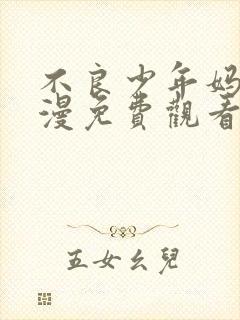 不良少年妈
漫免費觀看
五女幺兒